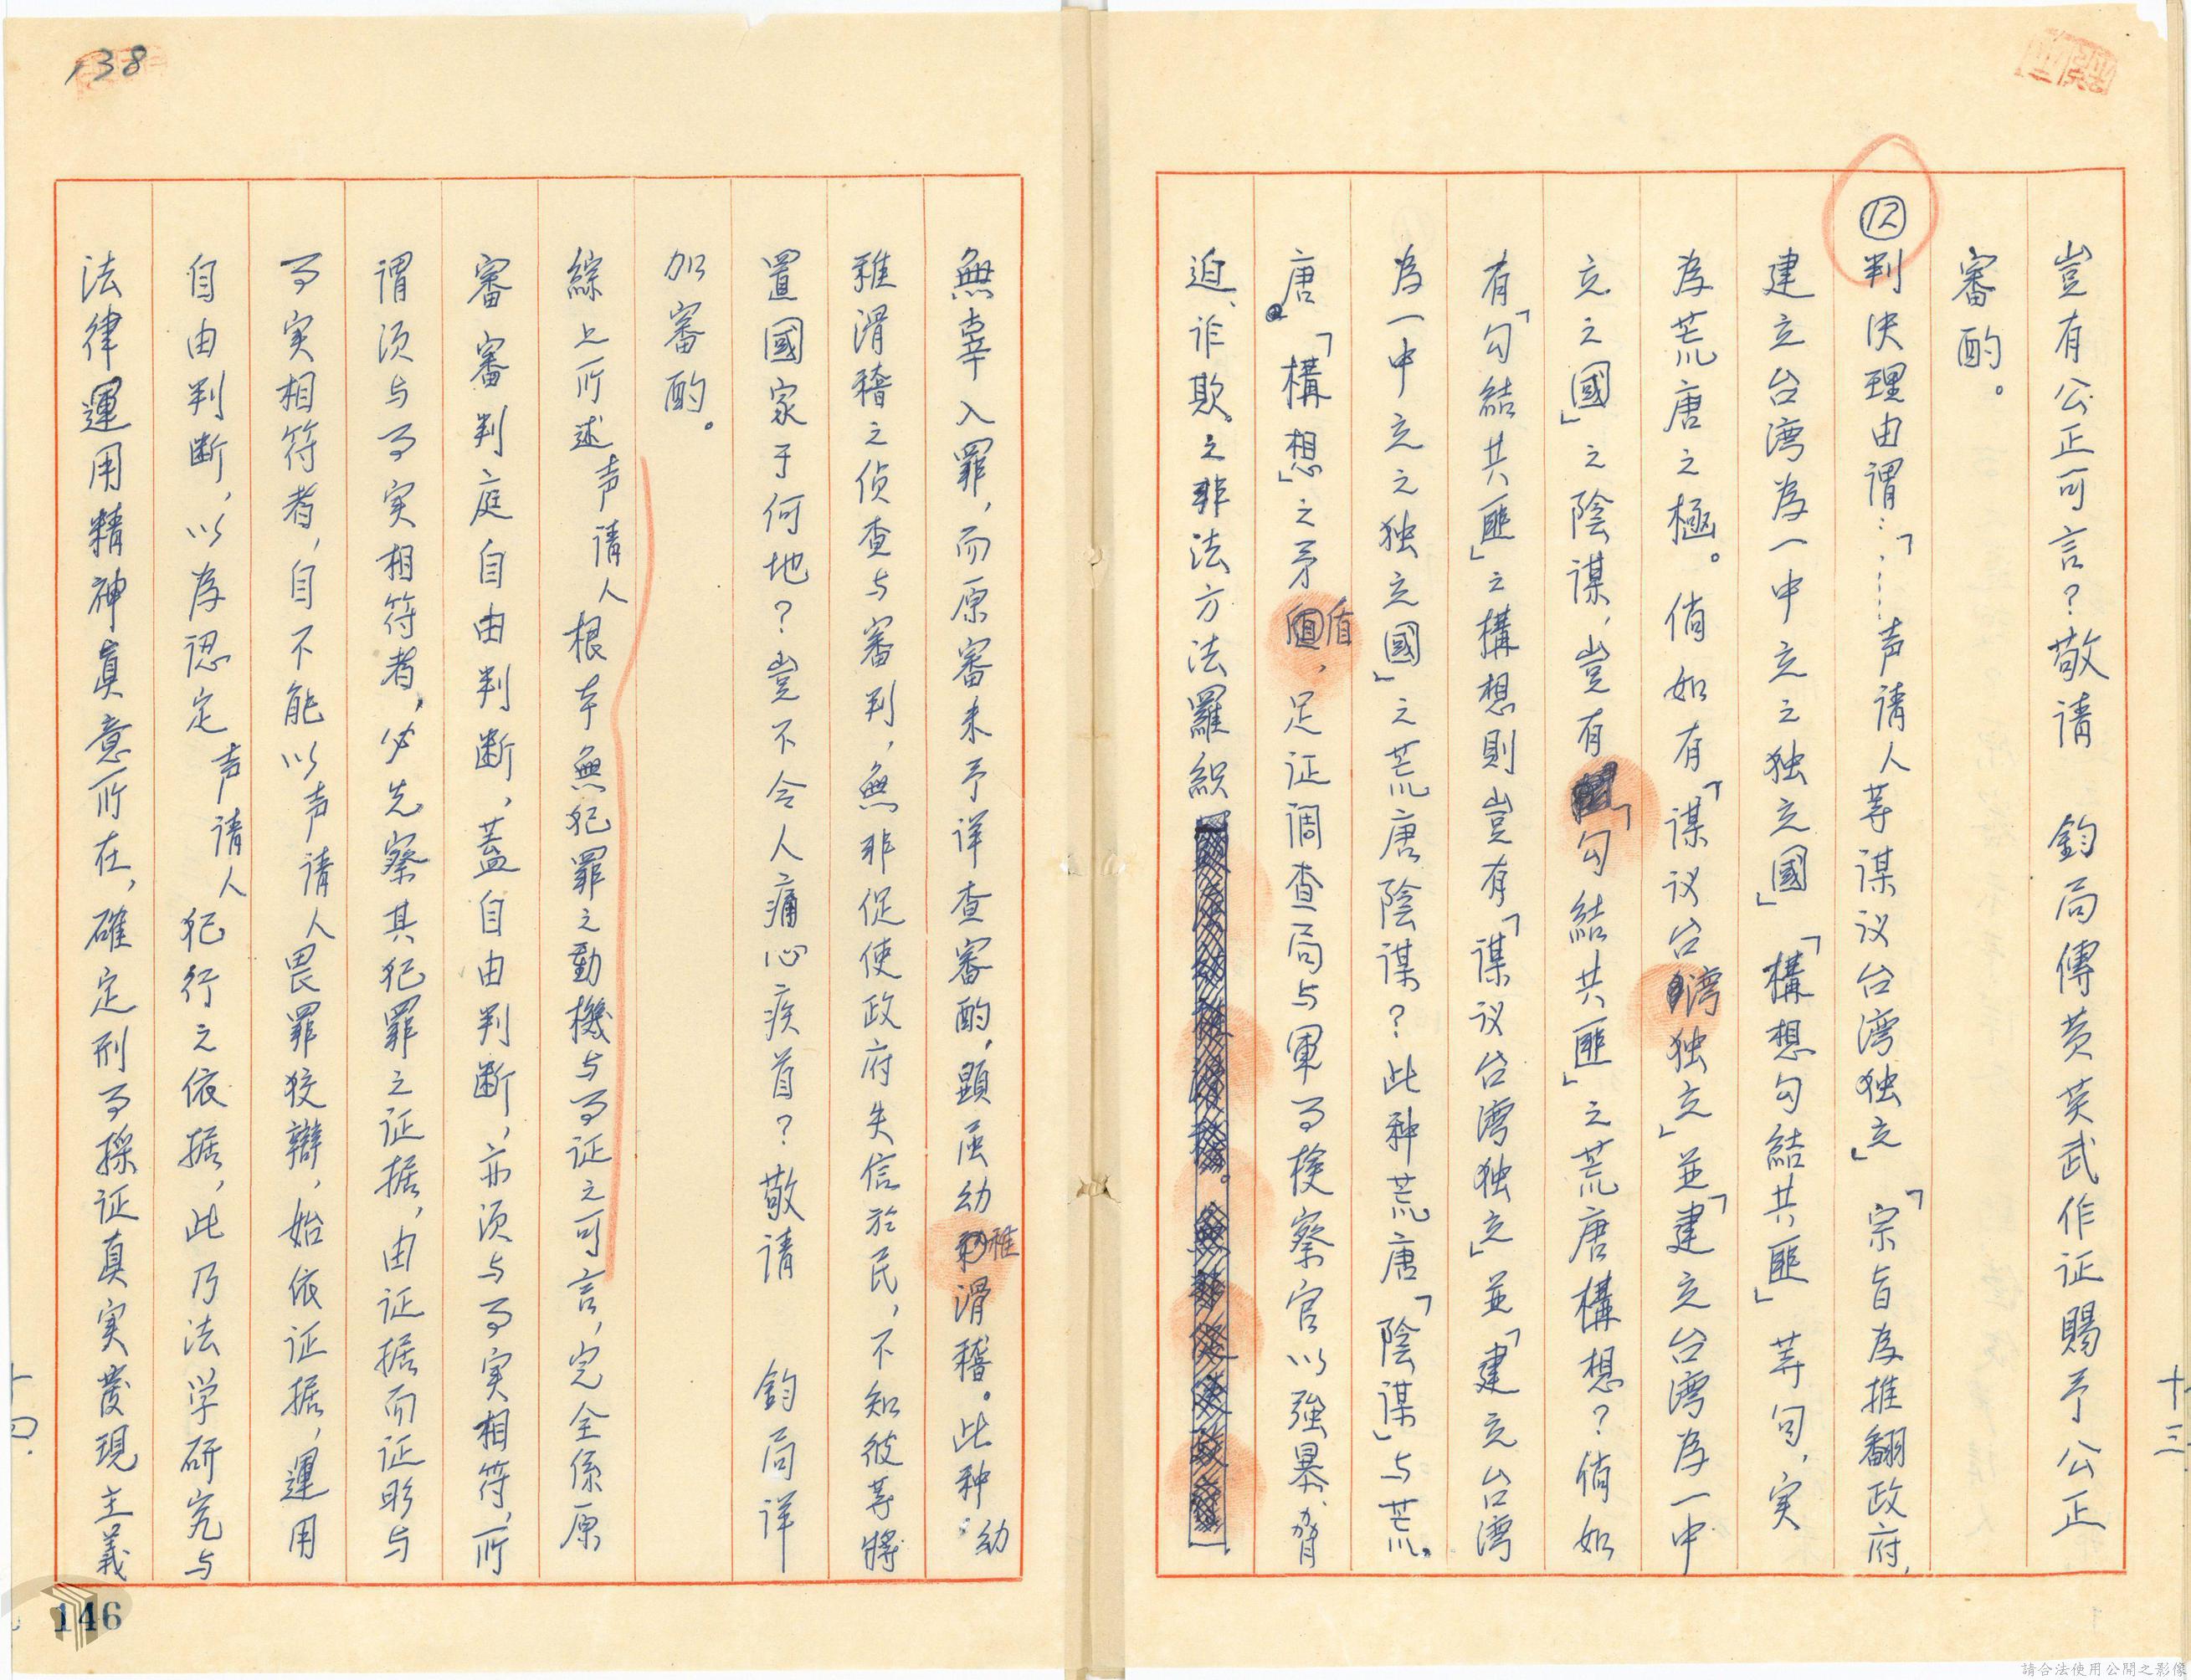 豈有公正可言？敬請　鈞局傳黃英武作证賜予公正
審酌。
⑫判决理由謂：「……声请人等谋议台湾独立」「宗旨為推翻政府，
建立台湾為一中立之独立國」「構想勾結共匪」等句，实
為荒唐之極。倘如有「谋议台湾独立」並「建立台湾為一中
立之國」之陰谋，豈有「勾結共匪」之荒唐構想？倘如
有「勾結共匪」之構想則豈有「谋议台湾独立」並「建立台湾
為一中立之独立國」之荒唐陰谋？此种荒唐「陰谋」与荒
唐「構想」之矛盾，足证调查局与軍事检察官以強暴、脅
迫、诈欺之非法方法羅織
十三
無辜入罪，而原審未予详查審酌，顕屈幼稚滑稽。此种幼
稚滑稽之侦查与審判，無非促使政府失信於民，不知彼等將
置國家于何地？豈不令人痛心疾首？敬请　鈞局详
加審酌。
綜上所述声请人根本無犯罪之動機与事证之可言，完全係原
審審判庭自由判断，蓋自由判断，亦须与事实相符，所
谓须与事实相符者，必先察其犯罪之证据，由证据而证明与
事实相符者，自不能以声请人畏罪狡辯，始依证据，運用
自由判断，以為認定声请人犯行之依据，此乃法学研究与
法律運用精神真意所在，確定刑事採证真实發現主義
十四
138
146
請合法使用公開之影像